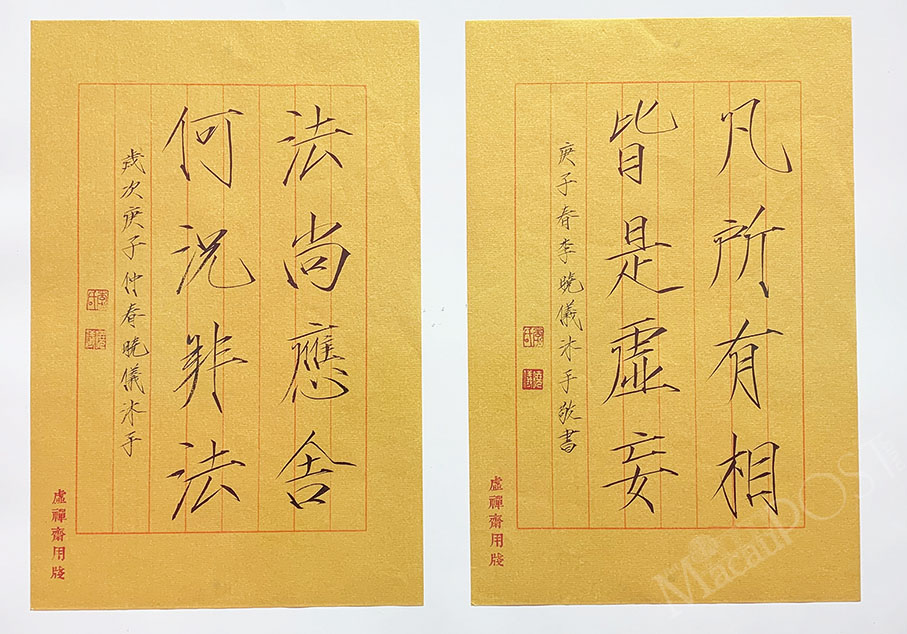 凡所有相
皆是虛妄
庚子春李曉儀沐手敬書
虛禪齋用牋
法尚應舍
何況非法
歲次庚子仲春曉儀沐手
虛禪齋用牋
Macau POST